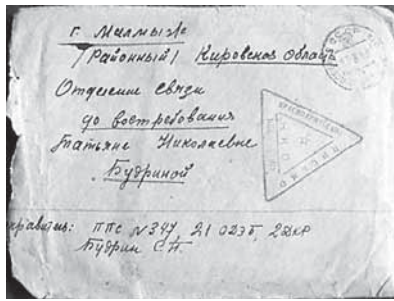 г. Малмыж
/Районный/ Кировская область
Отделение связи
до востребования
Татьяне Николаевне
Будриной
КРАСНОАРМЕЙСКОЕ
ПИСЬМО
правитель: ППС №347, 21 ОДЭП, 2ДКР
Будрин С.П.